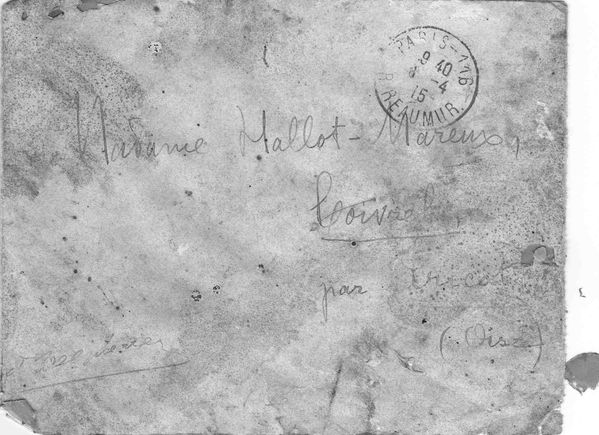 PARIS-116
9 40
-4
15
R. REAUMUR
Madame Hallot-Mareux,
par Tricot
(Oise)